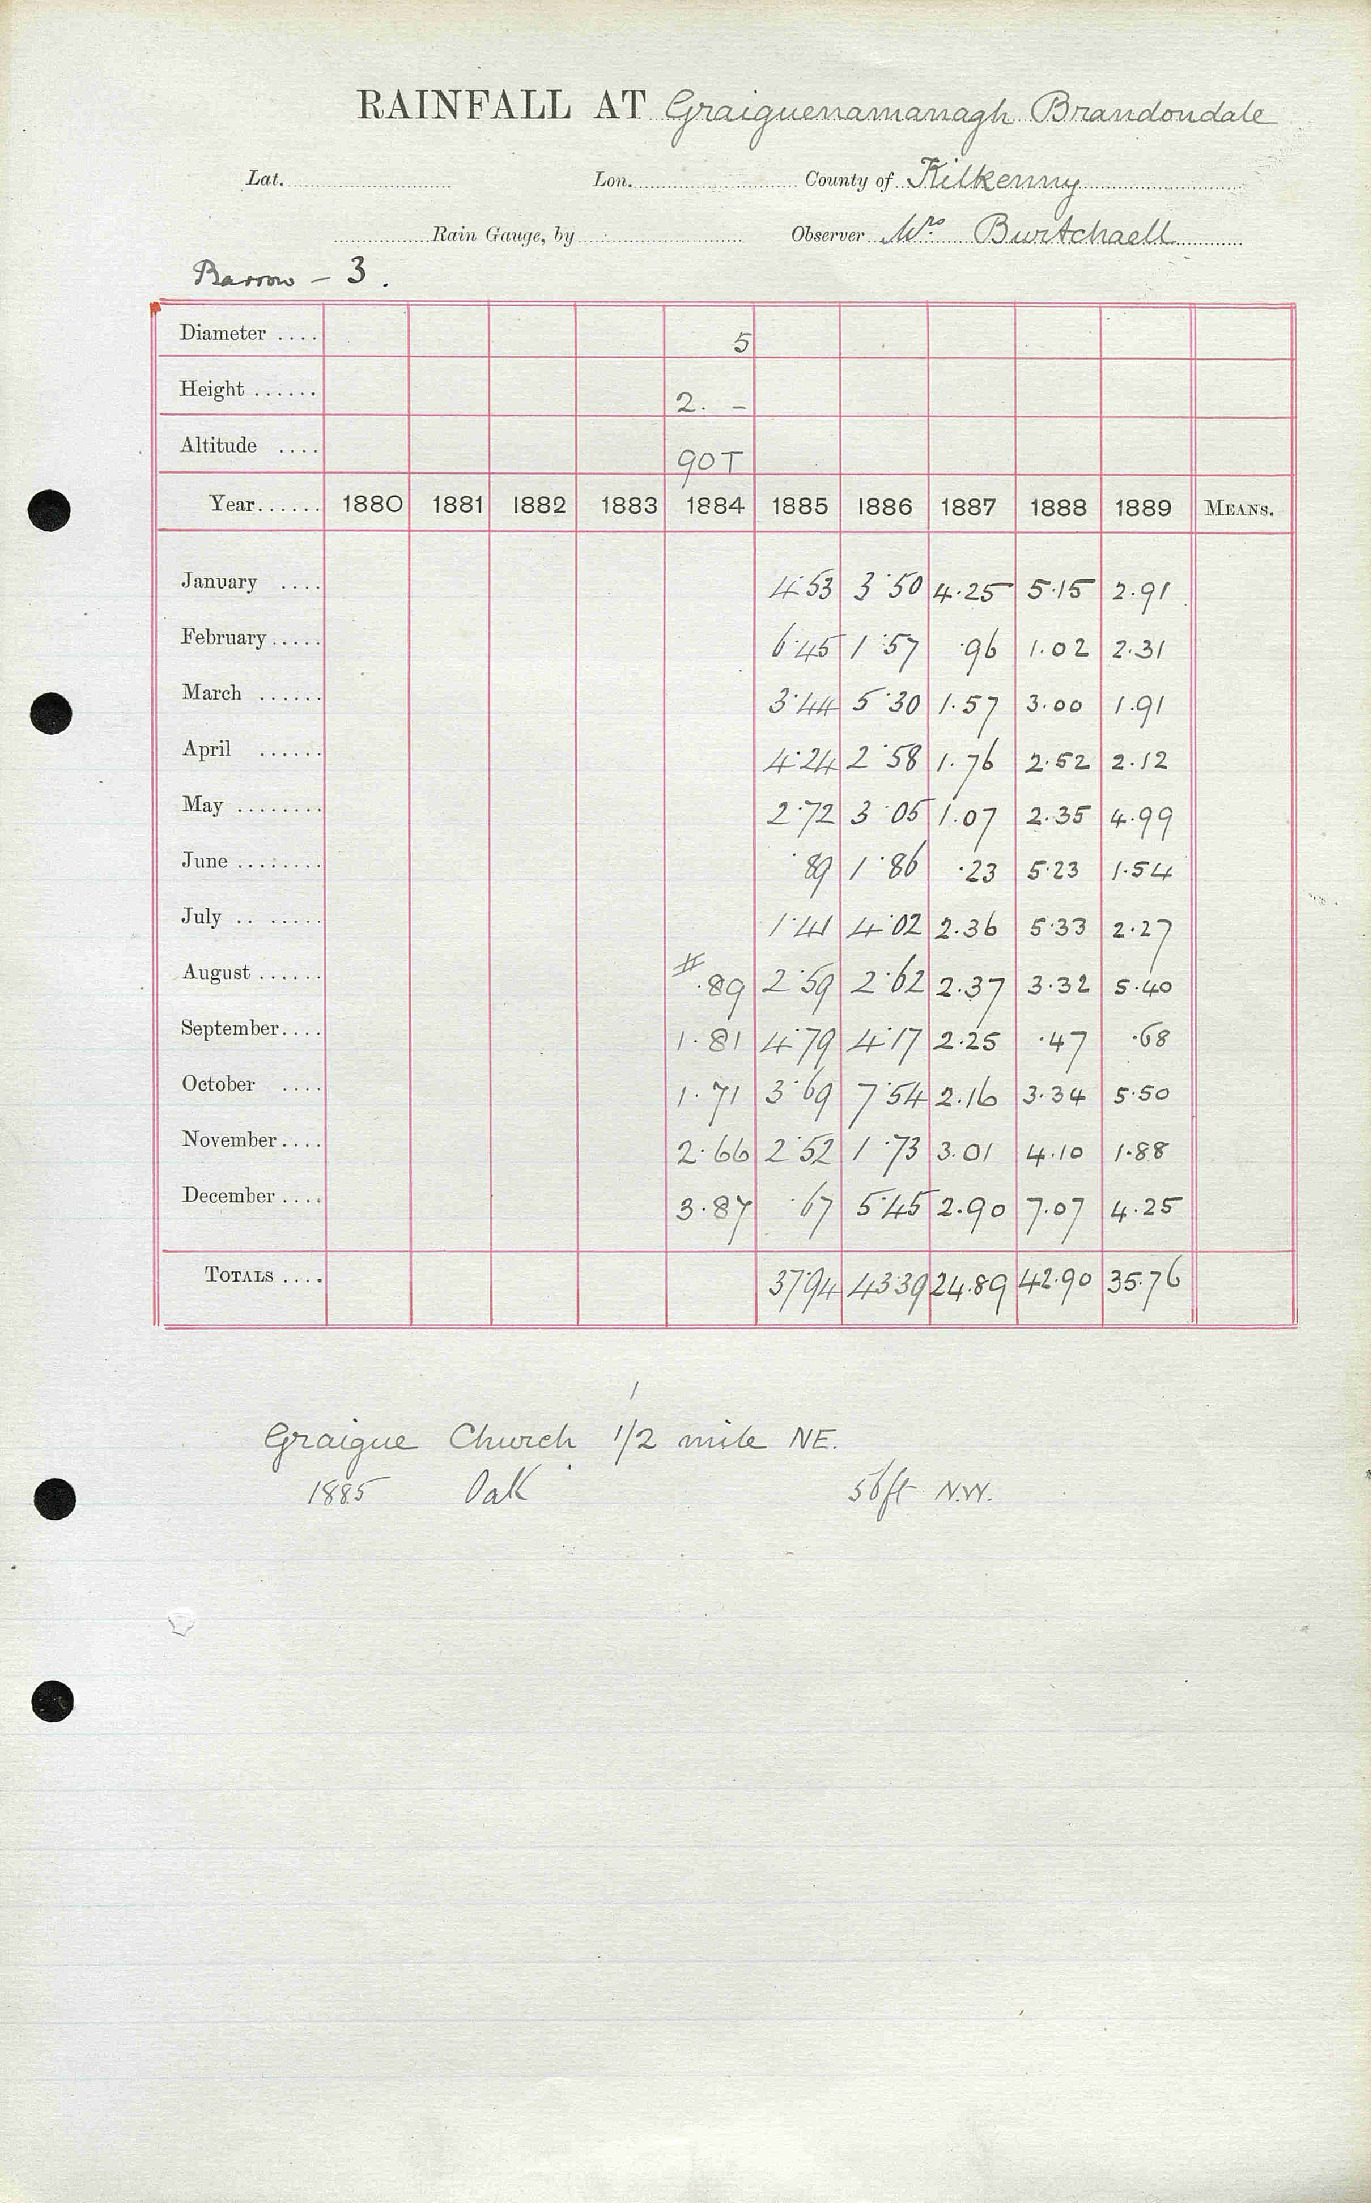 RAINFALL AT Graiguenamanagh Brandondale
Lat. Lon. County of Kilkenny
Rain Gauge, by Observer Mrs Burtchaell
Barrow - 3.
Diameter .... 5
Height ...... 2. -
Altitude .... 90T
Year...... 1880 1881 1882 1883 1884 1885 1886 1887 1888 1889 MEANS.
January .... 4.53 3.50 4.25 5.15 2.91
February..... 6.45 1.57 .96 1.02 2.31
March ...... 3.44 5.30 1.57 3.00 1.91
April ...... 4.24 2.58 1.76 2.52 2.12
May ........ 2.72 3.05 1.07 2.35 4.99
June ........ .89 1.86 .23 5.23 1.54
July .. ..... 1.41 4.02 2.36 5.33 2.27
August ...... # .89 2.59 2.62 2.37 3.32 5.40
September.... 1.81 4.79 4.17 2.25 .47 .68
October .... 1.71 3.69 7.54 2.16 3.34 5.50
November.... 2.66 2.52 1.73 3.01 4.10 1.88
December .... 3.87 .67 5.45 2.90 7.07 4.25
TOTALS .... 37.94 43.39 24.89 42.90 35.76
Graigue Church 1/2 mile NE.
1885 Oak 56ft N.W.